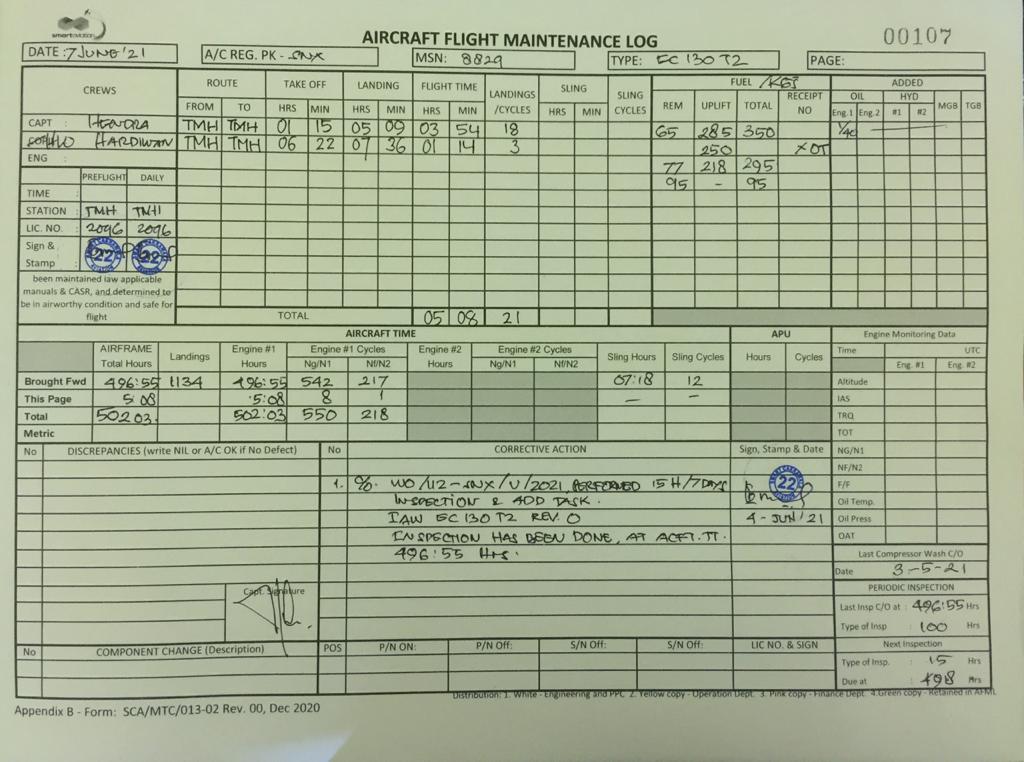 smartaviation
AIRCRAFT FLIGHT MAINTENANCE LOG
00107
DATE : 7 JUNE '21
A/C REG. PK - SNX
MSN: 8829
TYPE: EC 130 T2
PAGE:
CREWS ROUTE TAKE OFF LANDING FLIGHT TIME LANDINGS /CYCLES SLING SLING CYCLES FUEL /KGS ADDED
FROM TO HRS MIN HRS MIN HRS MIN HRS MIN REM UPLIFT TOTAL RECEIPT NO OIL HYD MGB TGB
Eng.1 Eng.2 #1 #2
CAPT : HENDRA TMH TMH 01 15 05 09 03 54 18 65 285 350
HARDIWAN TMH TMH 06 22 07 36 01 14 3 250
ENG : 77 218 295
PREFLIGHT DAILY 95 - 95
TIME :
STATION : TMH TMH
LIC. NO. : 2096 2096
Sign & Stamp : 22 22
been maintained iaw applicable
manuals & CASR, and determined to
be in airworthy condition and safe for
flight
TOTAL 05 08 21
AIRCRAFT TIME APU Engine Monitoring Data
AIRFRAME Total Hours Landings Engine #1 Hours Engine #1 Cycles Engine #2 Hours Engine #2 Cycles Sling Hours Sling Cycles Hours Cycles Time UTC
Ng/N1 Nf/N2 Ng/N1 Nf/N2 Eng. #1 Eng. #2
Brought Fwd 496:55 1134 496:55 542 217 07:18 12 Altitude
This Page 5:08 5:08 8 1 — — IAS
Total 502:03 502:03 550 218 TRQ
Metric TOT
No DISCREPANCIES (write NIL or A/C OK if No Defect) No CORRECTIVE ACTION Sign, Stamp & Date NG/N1
NF/N2
1. C/o. WO/112-SNX/V/2021, PERFORMED 15 H/7 DAYS 22 F/F
INSPECTION & ADD TASK. Oil Temp.
IAW EC 130 T2 REV. 0 4 - JUN '21 Oil Press
INSPECTION HAS BEEN DONE, AT ACFT. TT. OAT
496:55 Hrs.
Last Compressor Wash C/O
Date 3-5-21
PERIODIC INSPECTION
Capt. Signature
Last Insp C/O at : 496:55 Hrs
Type of Insp : 100 Hrs
No COMPONENT CHANGE (Description) POS P/N ON: P/N Off: S/N Off: S/N Off: LIC NO. & SIGN Next Inspection
Type of Insp. : 15 Hrs
Due at : 498 Hrs
Distribution: 1. White - Engineering and PPC 2. Yellow copy - Operation Dept. 3. Pink copy - Finance Dept 4.Green copy - Retained in AFML
Appendix B - Form: SCA/MTC/013-02 Rev. 00, Dec 2020